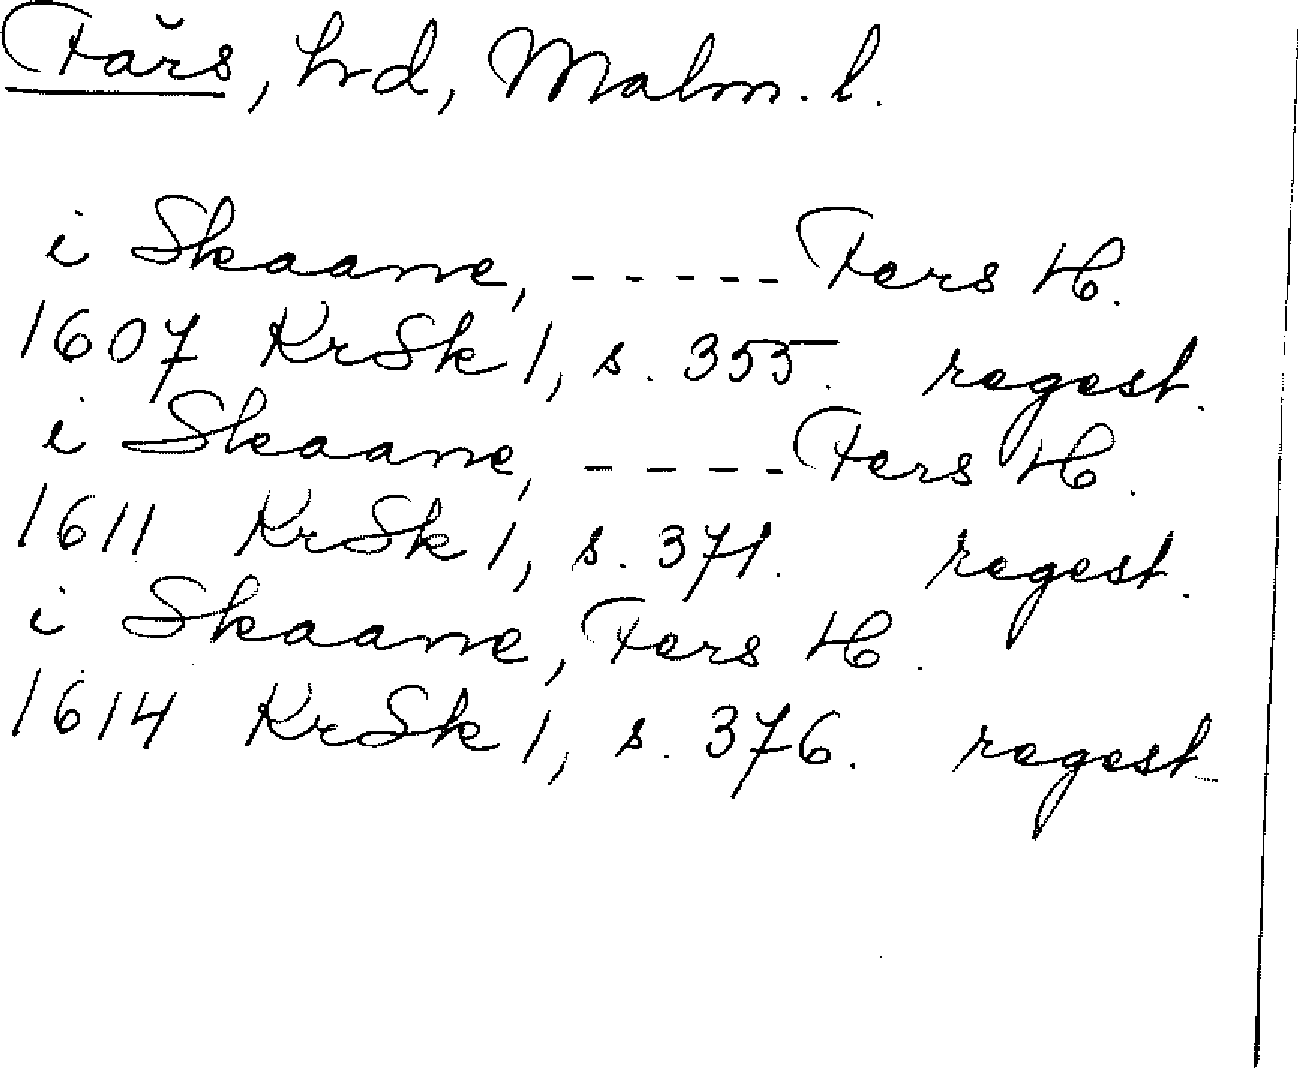 Färs, hd, Malm. l.
i Skaane, ----- Fers H.
1607 KrSk 1, s. 355. regest.
i Skaane, ---- Fers H.
1611 KrSk 1, s. 371. regest.
i Skaane, Fers H.
1614 KrSk 1, s. 376. regest.